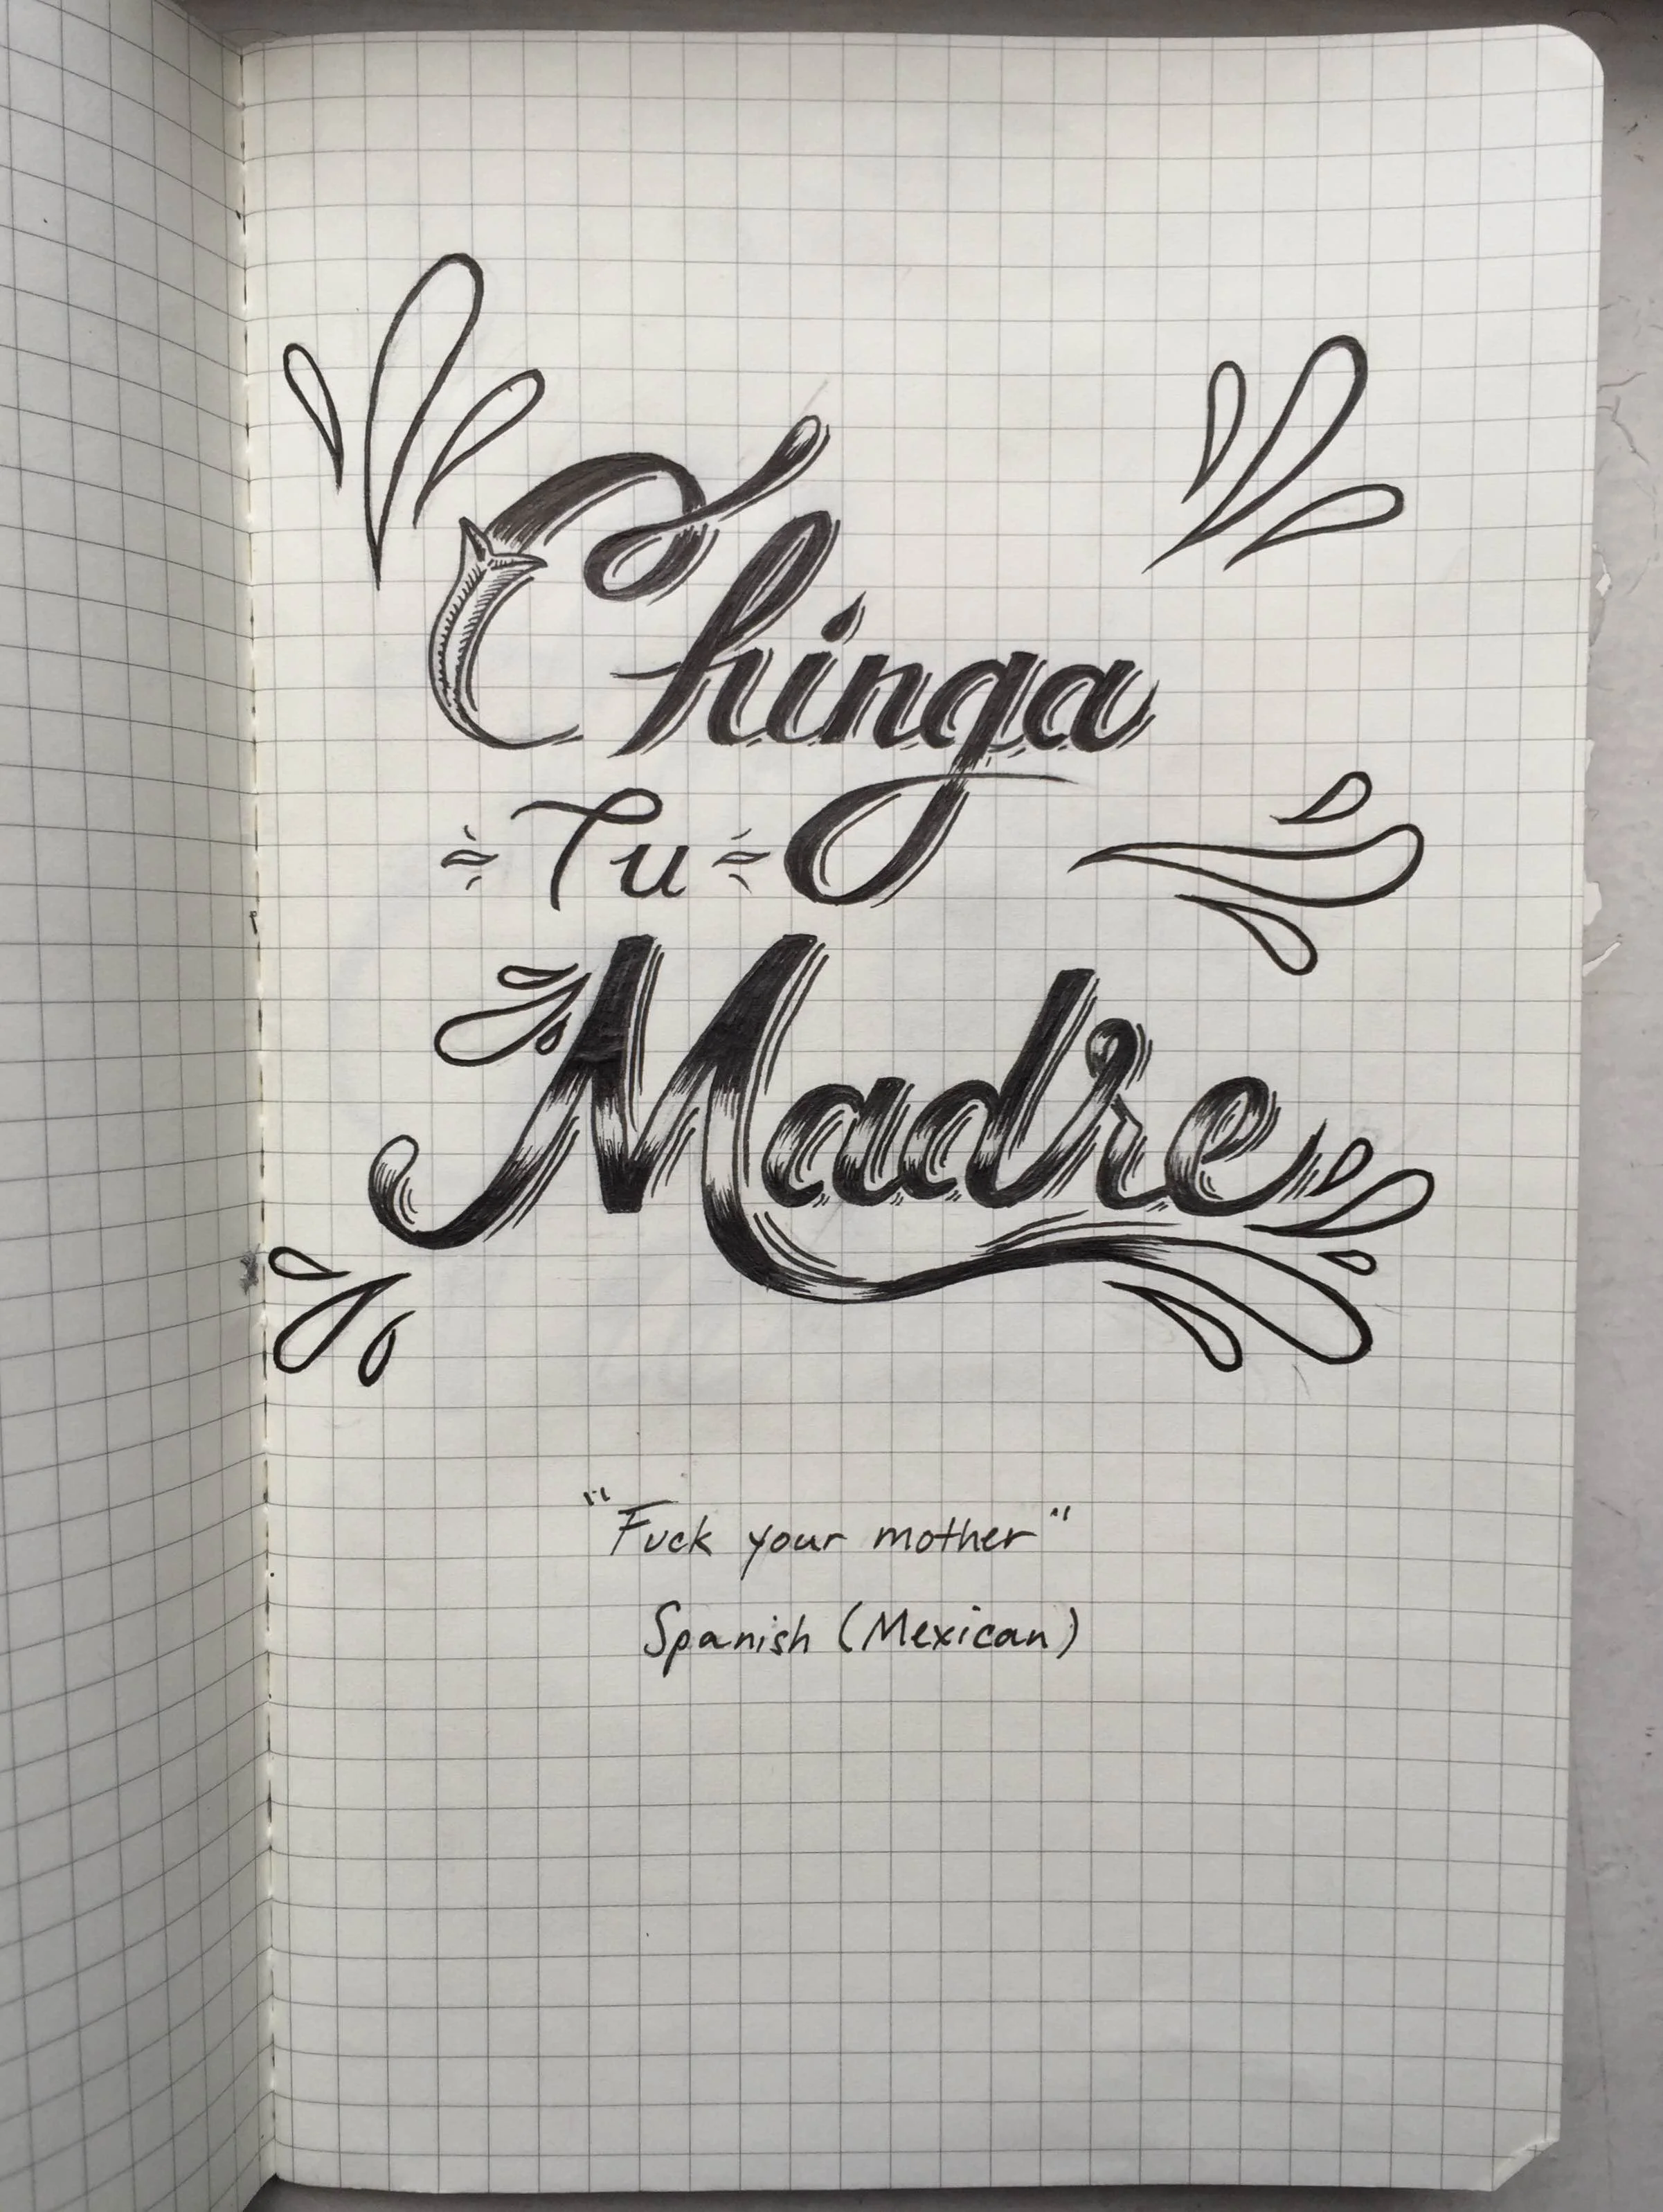 Chinga
Tu
Madre
"Fuck your mother"
Spanish (Mexican)